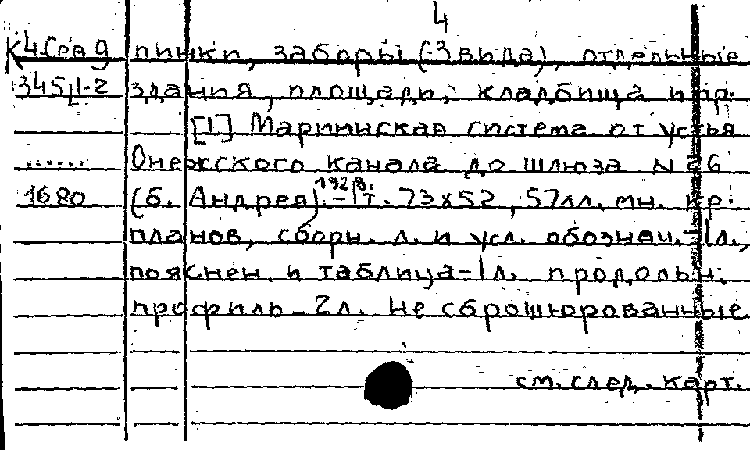 4
К 4 Сев 9 пинки, заборы (-3 вида), отдельные
345/1-2 здания, площади, кладбища и пр.
[1] Мариинская система от устья
...... Онежского канала до шлюза N 26
1680 (б. Андрея). 1928. -1т. 73х52, 57лл. мн. кр.
планов, сборн. л. и усл. обознач.-1л.,
пояснен. и таблица-1л. продольн.
профиль-2л. Не сброшюрованные
см. след. карт.